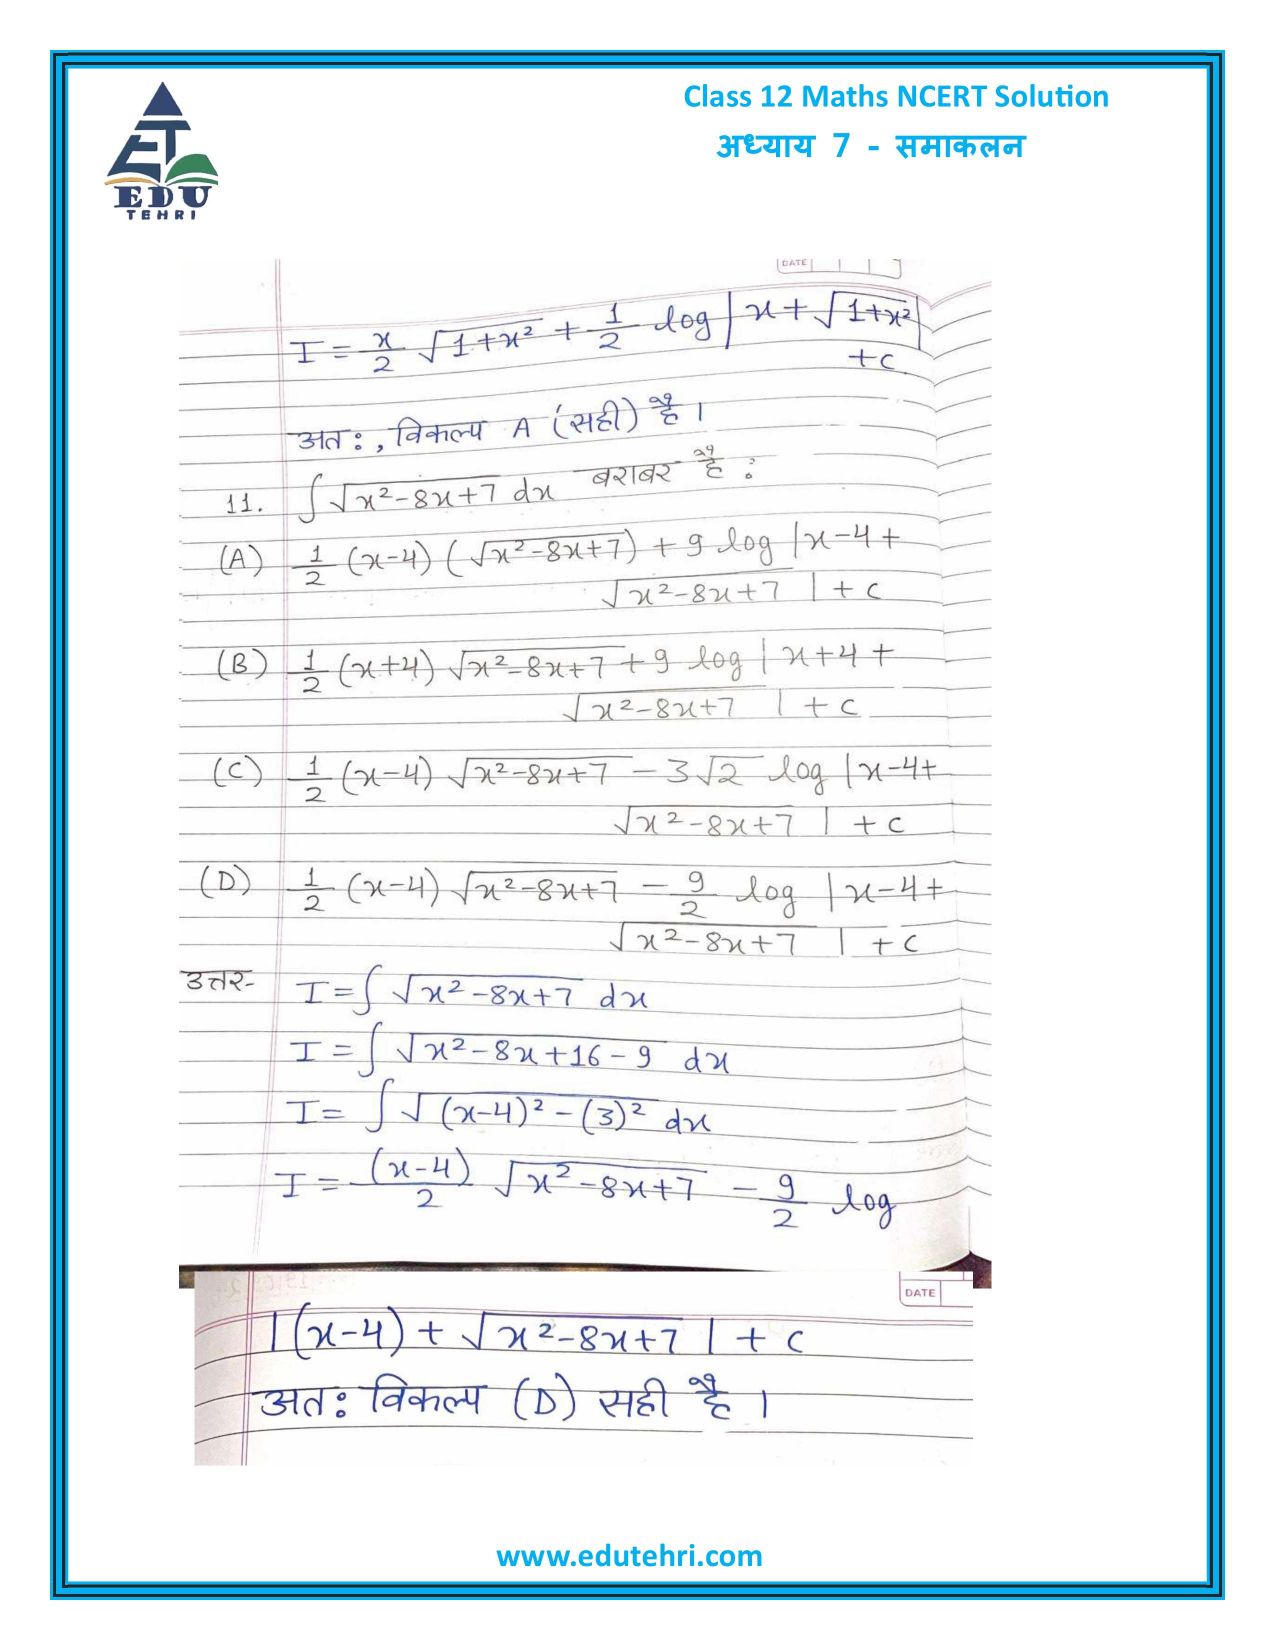 Class 12 Maths NCERT Solution
अध्याय 7 - समाकलन
EDU
TEHRI
DATE
I = x/2 √(1+x²) + 1/2 log |x + √(1+x²)|
+c
अतः, विकल्प A (सही) है।
11. ∫√(x²-8x+7) dx बराबर है:
(A) 1/2 (x-4) (√(x²-8x+7)) + 9 log |x-4 +
√(x²-8x+7) | + c
(B) 1/2 (x+4) √(x²-8x+7) + 9 log | x+4 +
√(x²-8x+7) | + c
(C) 1/2 (x-4) √(x²-8x+7) - 3√2 log |x-4+
√(x²-8x+7) | + c
(D) 1/2 (x-4) √(x²-8x+7) - 9/2 log |x-4+
√(x²-8x+7) | + c
उत्तर- I = ∫ √(x²-8x+7) dx
I = ∫ √(x²-8x+16-9) dx
I = ∫ √((x-4)² - (3)²) dx
I = (x-4)/2 √(x²-8x+7) - 9/2 log
DATE
|(x-4) + √(x²-8x+7) | + c
अतः विकल्प (D) सही है।
www.edutehri.com